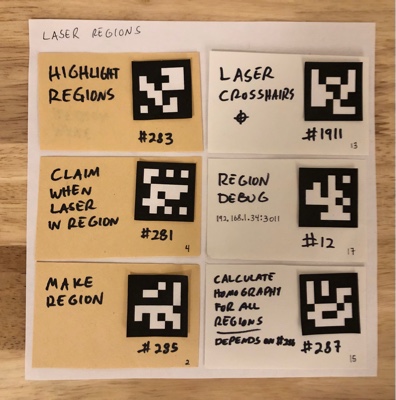 LASER REGIONS
HIGHLIGHT
REGIONS
#283
LASER
CROSSHAIRS
#1911
13
CLAIM
WHEN
LASER
IN REGION
#281
4
REGION
DEBUG
192.168.1.34:3011
#12
17
MAKE
REGION
#285
2
CALCULATE
HOMOGRAPHY
FOR ALL
REGIONS
DEPENDS ON
#287
15